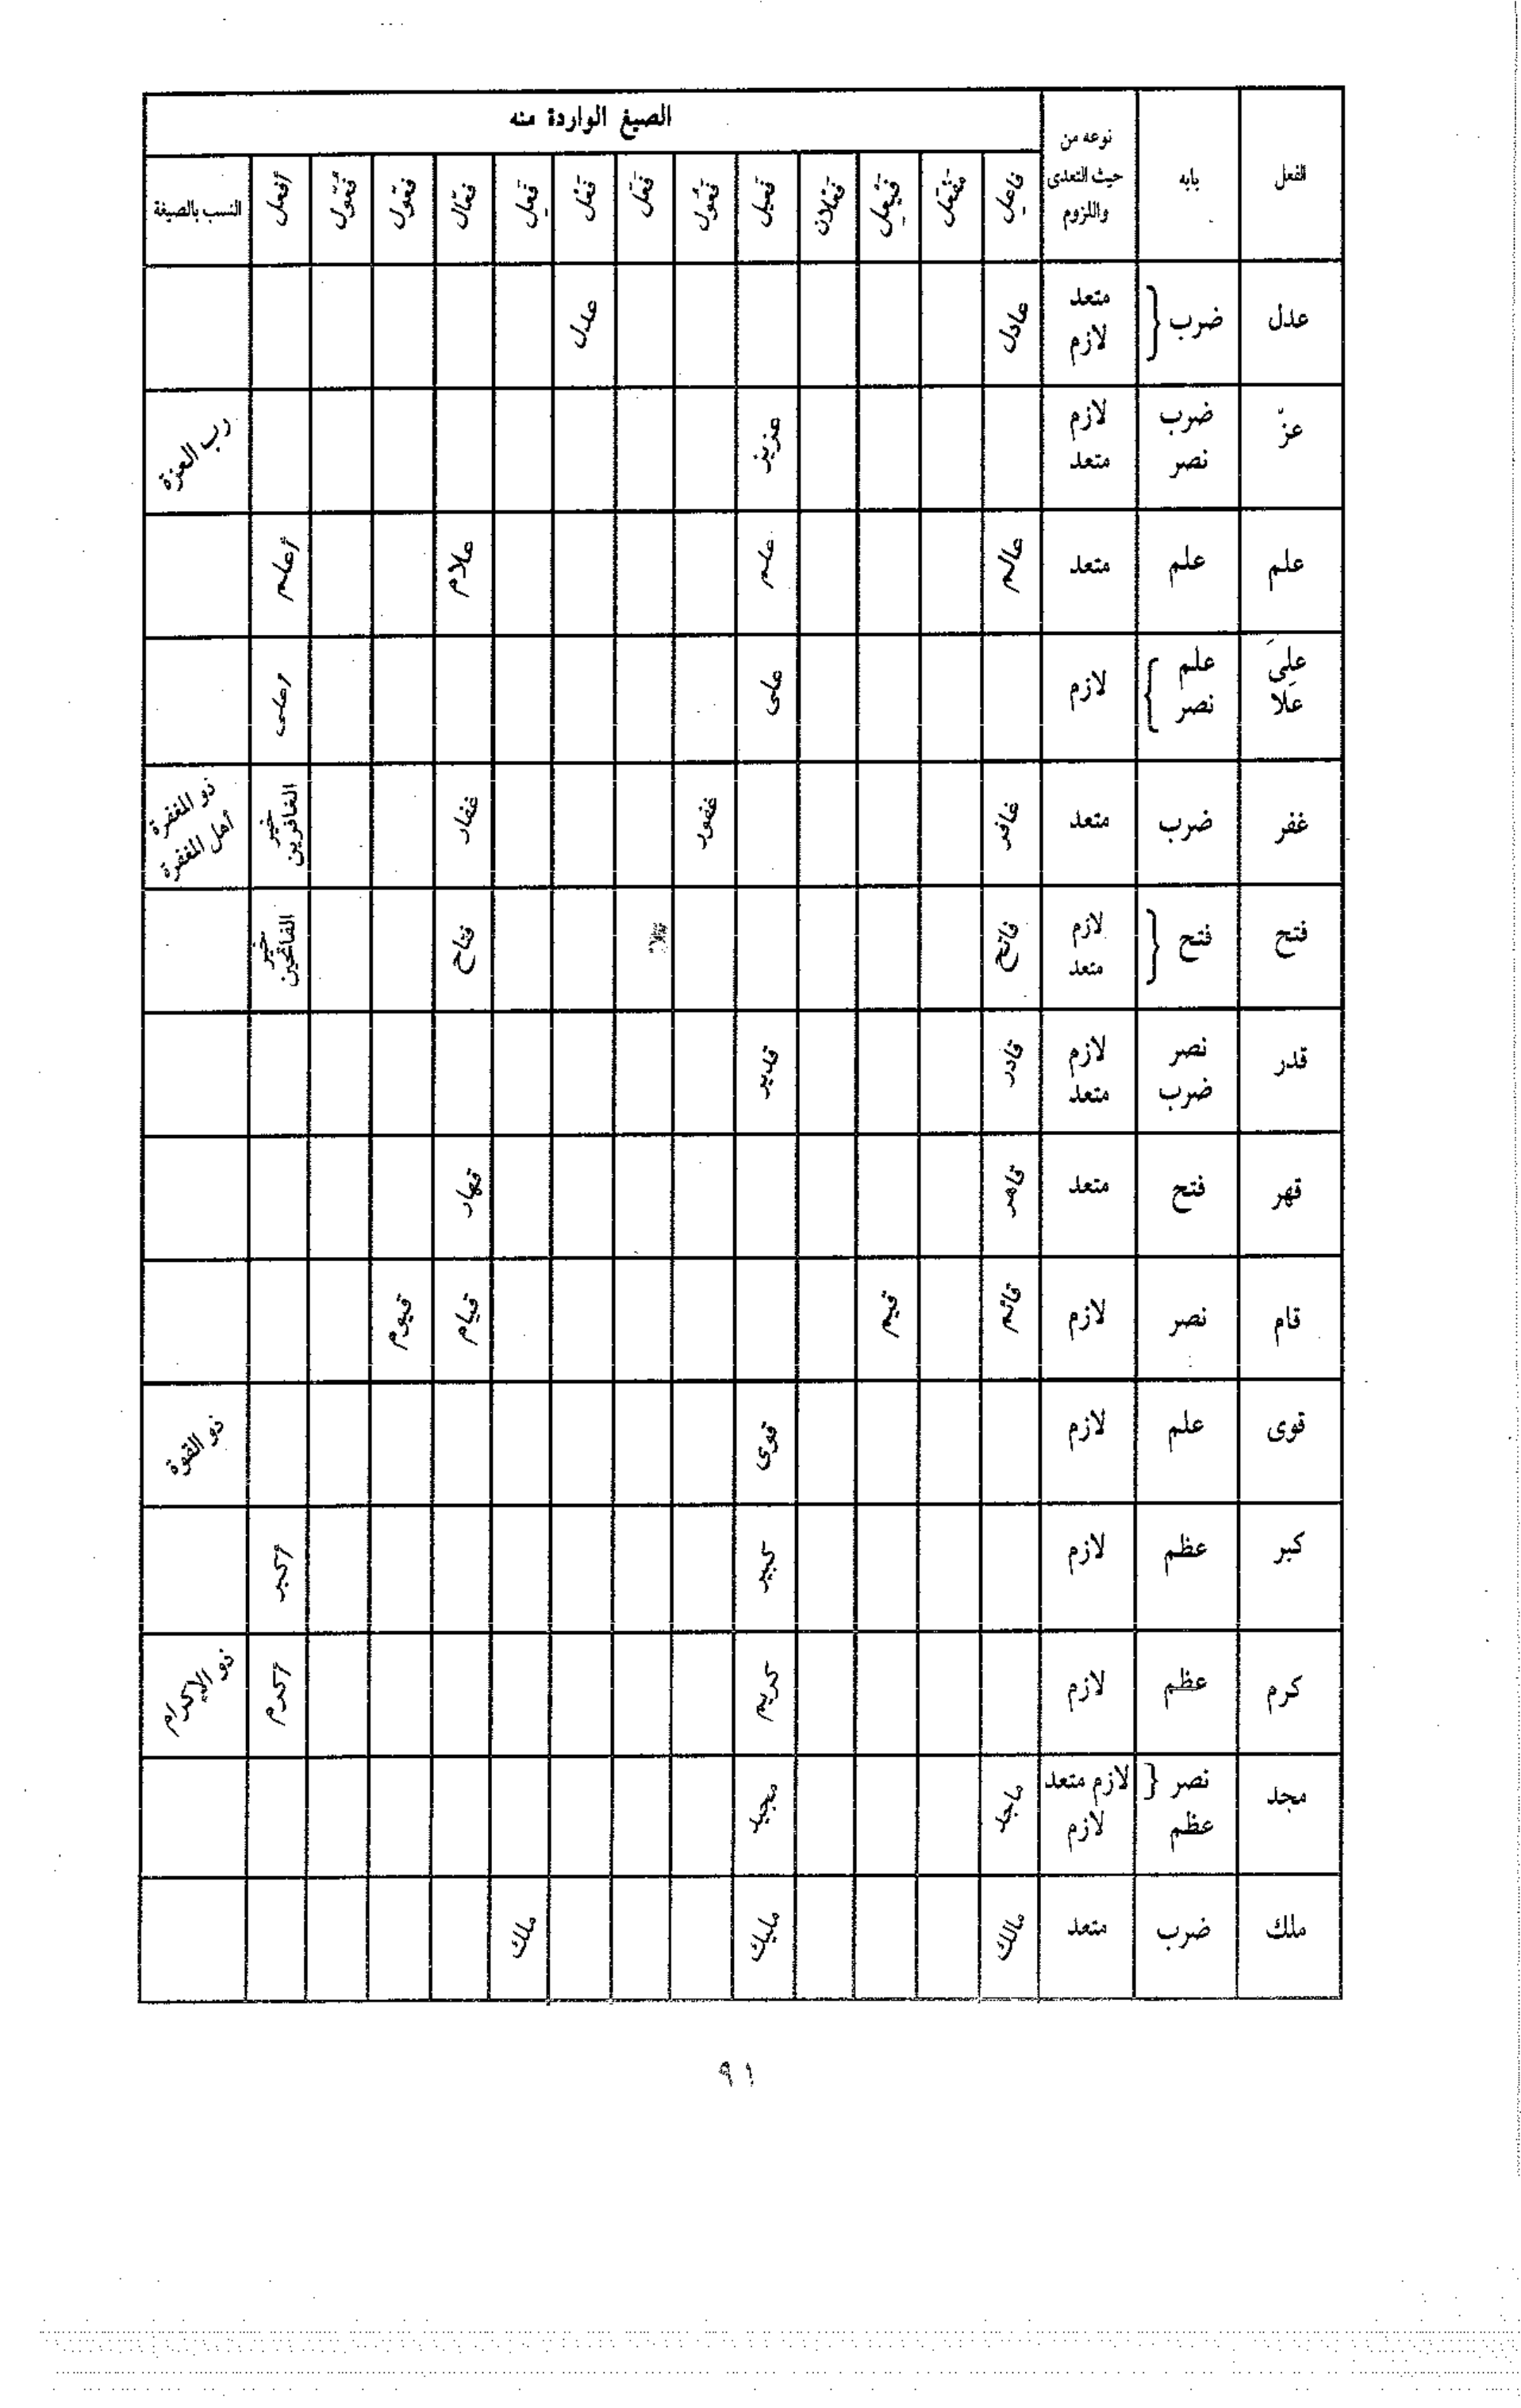 الفعل
بابه
نوعه من
حيث التعدى
واللزوم
الصيغ الواردة منه
فاعِل
مُفْعَل
فَيْعِل
فَعْلان
فَعِيل
فَعُول
فَعَل
فَعْل
فَعِل
فَعّال
فَعّول
فُعّول
أفعل
النسب بالصيغة
عدل
ضرب
متعد
لازم
عادل
عدل
عزّ
ضرب
نصر
لازم
متعد
عزيز
رب العزة
علم
علم
متعد
عالم
علم
علام
أعلم
علِىَ
عَلَا
علم
نصر
لازم
على
أعلى
غفر
ضرب
متعد
غافر
غفور
غفار
خير
الغافرين
ذو المغفرة
أهل المغفرة
فتح
فتح
لازم
متعد
فاتح
فتاح
خير
الفاتحين
قدر
نصر
ضرب
لازم
متعد
قادر
قدير
قهر
فتح
متعد
قاهر
قهار
قام
نصر
لازم
قائم
قيم
قيام
قيوم
قوى
علم
لازم
قوى
ذو القوة
كبر
عظم
لازم
كبير
أكبر
كرم
عظم
لازم
كريم
أكرم
ذو الإكرام
مجد
نصر
عظم
لازم متعد
لازم
ماجد
مجيد
ملك
ضرب
متعد
مالك
مليك
ملك
٩١